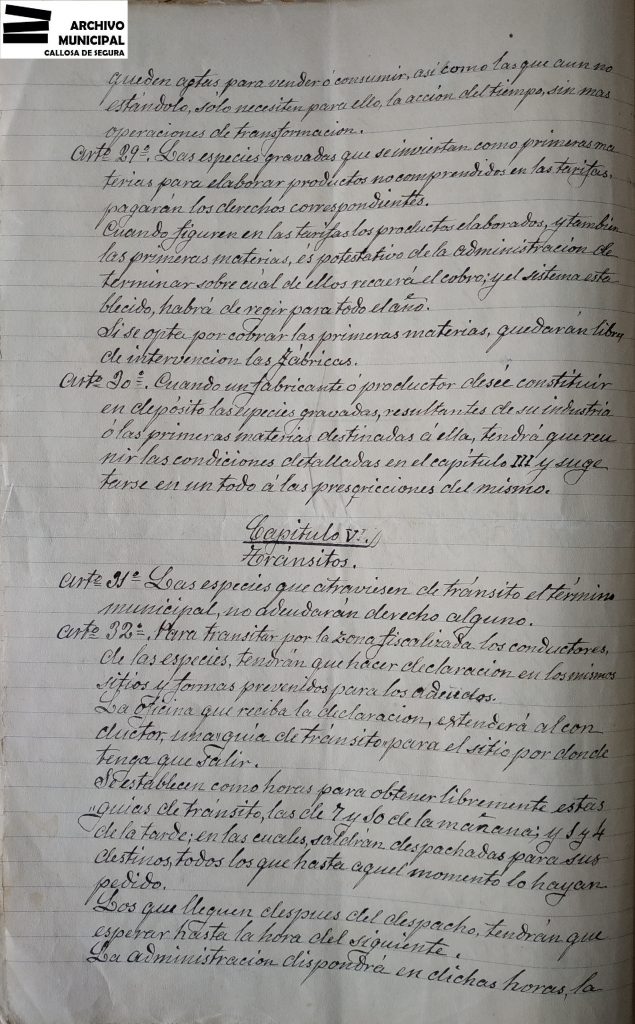 ARCHIVO
MUNICIPAL
CALLOSA DE SEGURA
queden aptas para vender ó consumir, así como las que aun no
estándolo, solo necesiten para ello, la acción del tiempo, sin mas
operaciones de transformacion.
Artº 29º. Las especies gravadas que se inviertan como primeras ma
terias para elaborar productos no comprendidos en las tarifas,
pagarán los derechos correspondientes.
Cuando figuren en las tarifas los productos elaborados, y tambien
las primeras materias, es potestativo de la administracion de
terminar sobre cuál de ellos recaerá el cobro; y el sistema esta
blecido, habrá de regir para todo el año.
Si se opta por cobrar las primeras materias, quedarán libres
de intervencion las Fábricas.
Artº 30º. Cuando un fabricante ó productor desée constituir
en depósito las especies gravadas, resultantes de su industria
ó las primeras materias destinadas á ella, tendrá que reu
nir las condiciones detalladas en el capítulo III y suge
tarse en un todo á las prescricciones del mismo.
Capitulo VI.
Tránsitos.
Artº 31º Las especies que atraviesen de tránsito el término
municipal, no adeudarán derecho alguno.
Artº 32º. Para transitar por la zona fiscalizada los conductores,
de las especies, tendrán que hacer declaracion en los mismos
sitios y formas prevenidos para los adeudos.
La oficina que reciba la declaracion, extenderá al con
ductor, una "guia de tránsito" para el sitio por donde
tenga que salir.
Se establecen como horas para obtener libremente estas
guías de tránsito, las de 7 y 10 de la mañana; y 1 y 4
de la tarde; en las cuales, saldrán despachadas para sus
destinos, todos los que hasta aquel momento lo hayan
pedido.
Los que lleguen despues del despacho, tendrán que
esperar hasta la hora del siguiente.
La administracion dispondrá en dichas horas, la